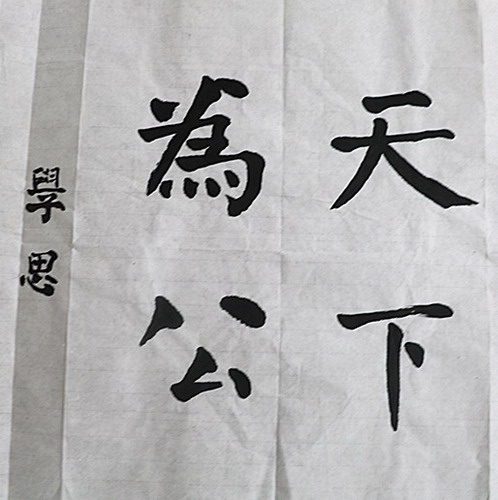 天下
為公
學思